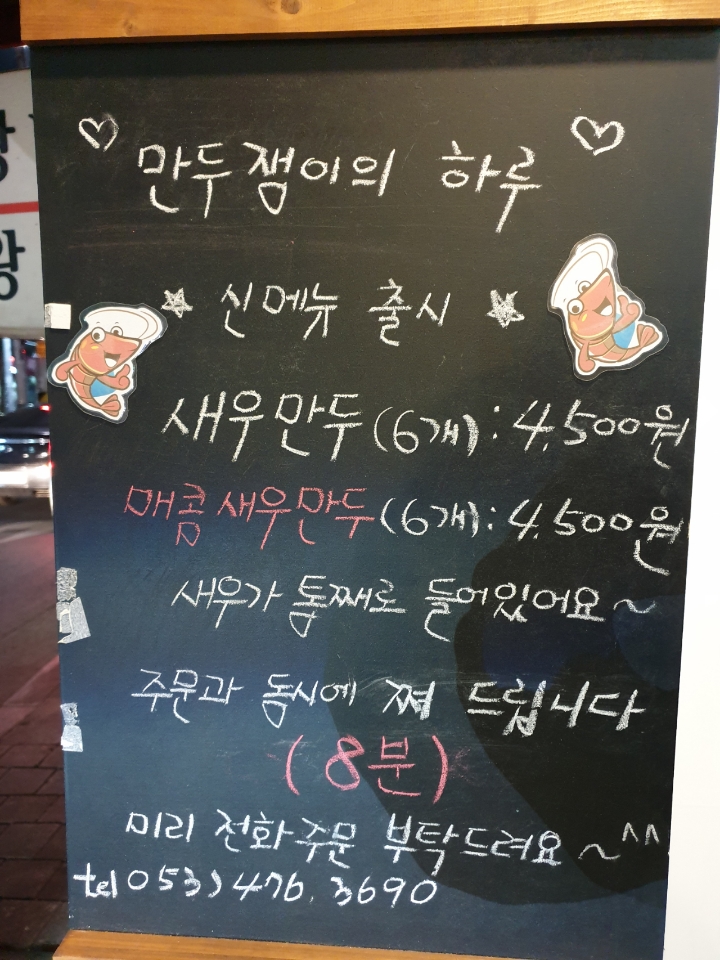 ♡ 만두쟁이의 하루 ♡
☆ 신메뉴 출시 ☆
새우만두(6개): 4,500원
매콤새우만두(6개): 4,500원
새우가 통째로 들어있어요~
주문과 동시에 쪄 드립니다
(8분)
미리 전화주문 부탁드려요~^^
tel 053) 476. 3690
왕